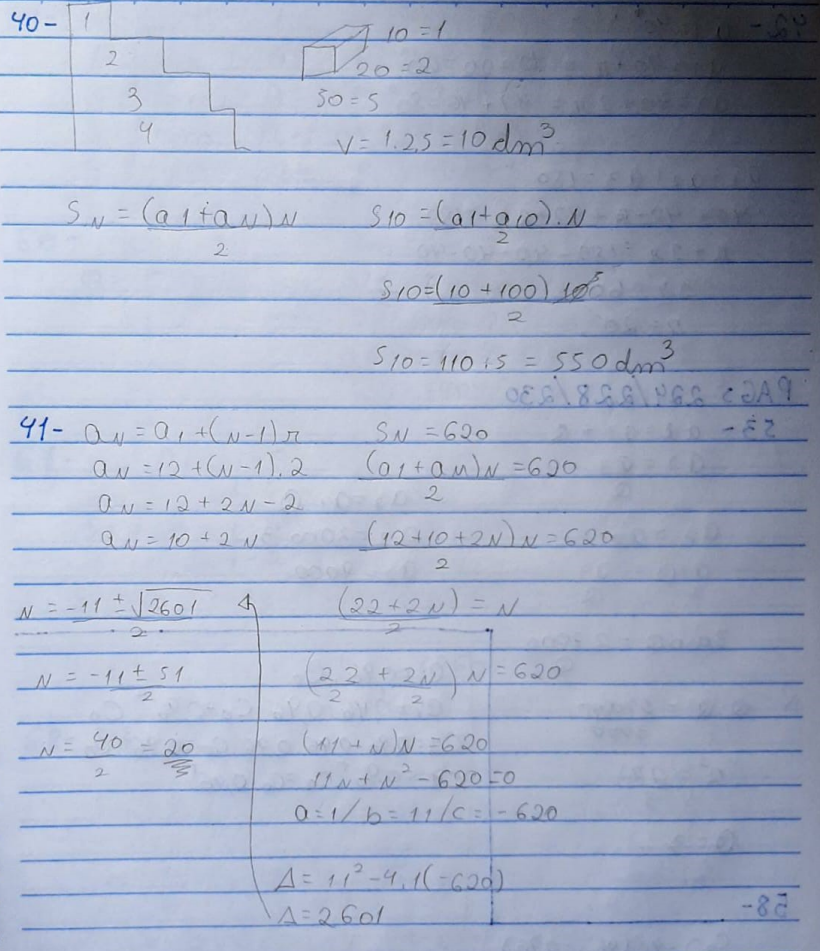 40-
1
2
3
4
10 = 1
20 = 2
50 = 5
V = 1.2.5 = 10 dm³
SN = (a1 + aN)N / 2
S10 = (a1 + a10).N / 2
S10 = (10 + 100) 10⁵ / 2
S10 = 110.5 = 550 dm³
41- aN = a1 + (N-1)r
aN = 12 + (N-1).2
aN = 12 + 2N - 2
aN = 10 + 2N
SN = 620
(a1 + aN)N / 2 = 620
(12 + 10 + 2N)N / 2 = 620
(22 + 2N) / 2 = N
(22/2 + 2N/2) N = 620
(11 + N)N = 620
11N + N² - 620 = 0
a = 1 / b = 11 / c = -620
Δ = 11² - 4.1(-620)
Δ = 2601
N = -11 ± √2601 / 2
N = -11 ± 51 / 2
N = 40 / 2 = 20
PAGS 224/228/230
53-
58-